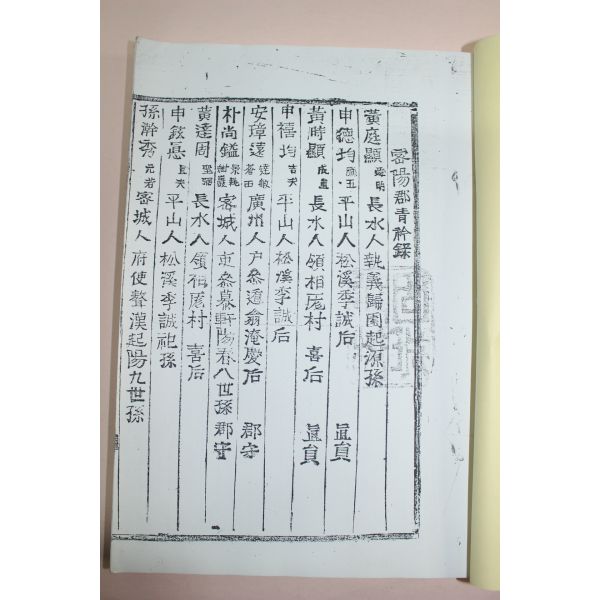 密陽郡青衿錄
黃庭顯 長水人 執義歸園起源孫
申德均 平山人 松溪季誠后 眞員
黃時顯 成五 長水人 領相厖村 喜后 眞員
申禧均 吉夫 平山人 松溪季誠后
安璋遠 廣州人 戶參遁翁淹慶后 郡守
朴尚鎰 密城人 吏參慕軒陽春八世孫 郡守
黃達周 聖 長水人 領相厖村 喜后
申鉉 平山人 松溪季誠祀孫
孫幹秀 元若 密城人 府使聱漢起陽九世孫